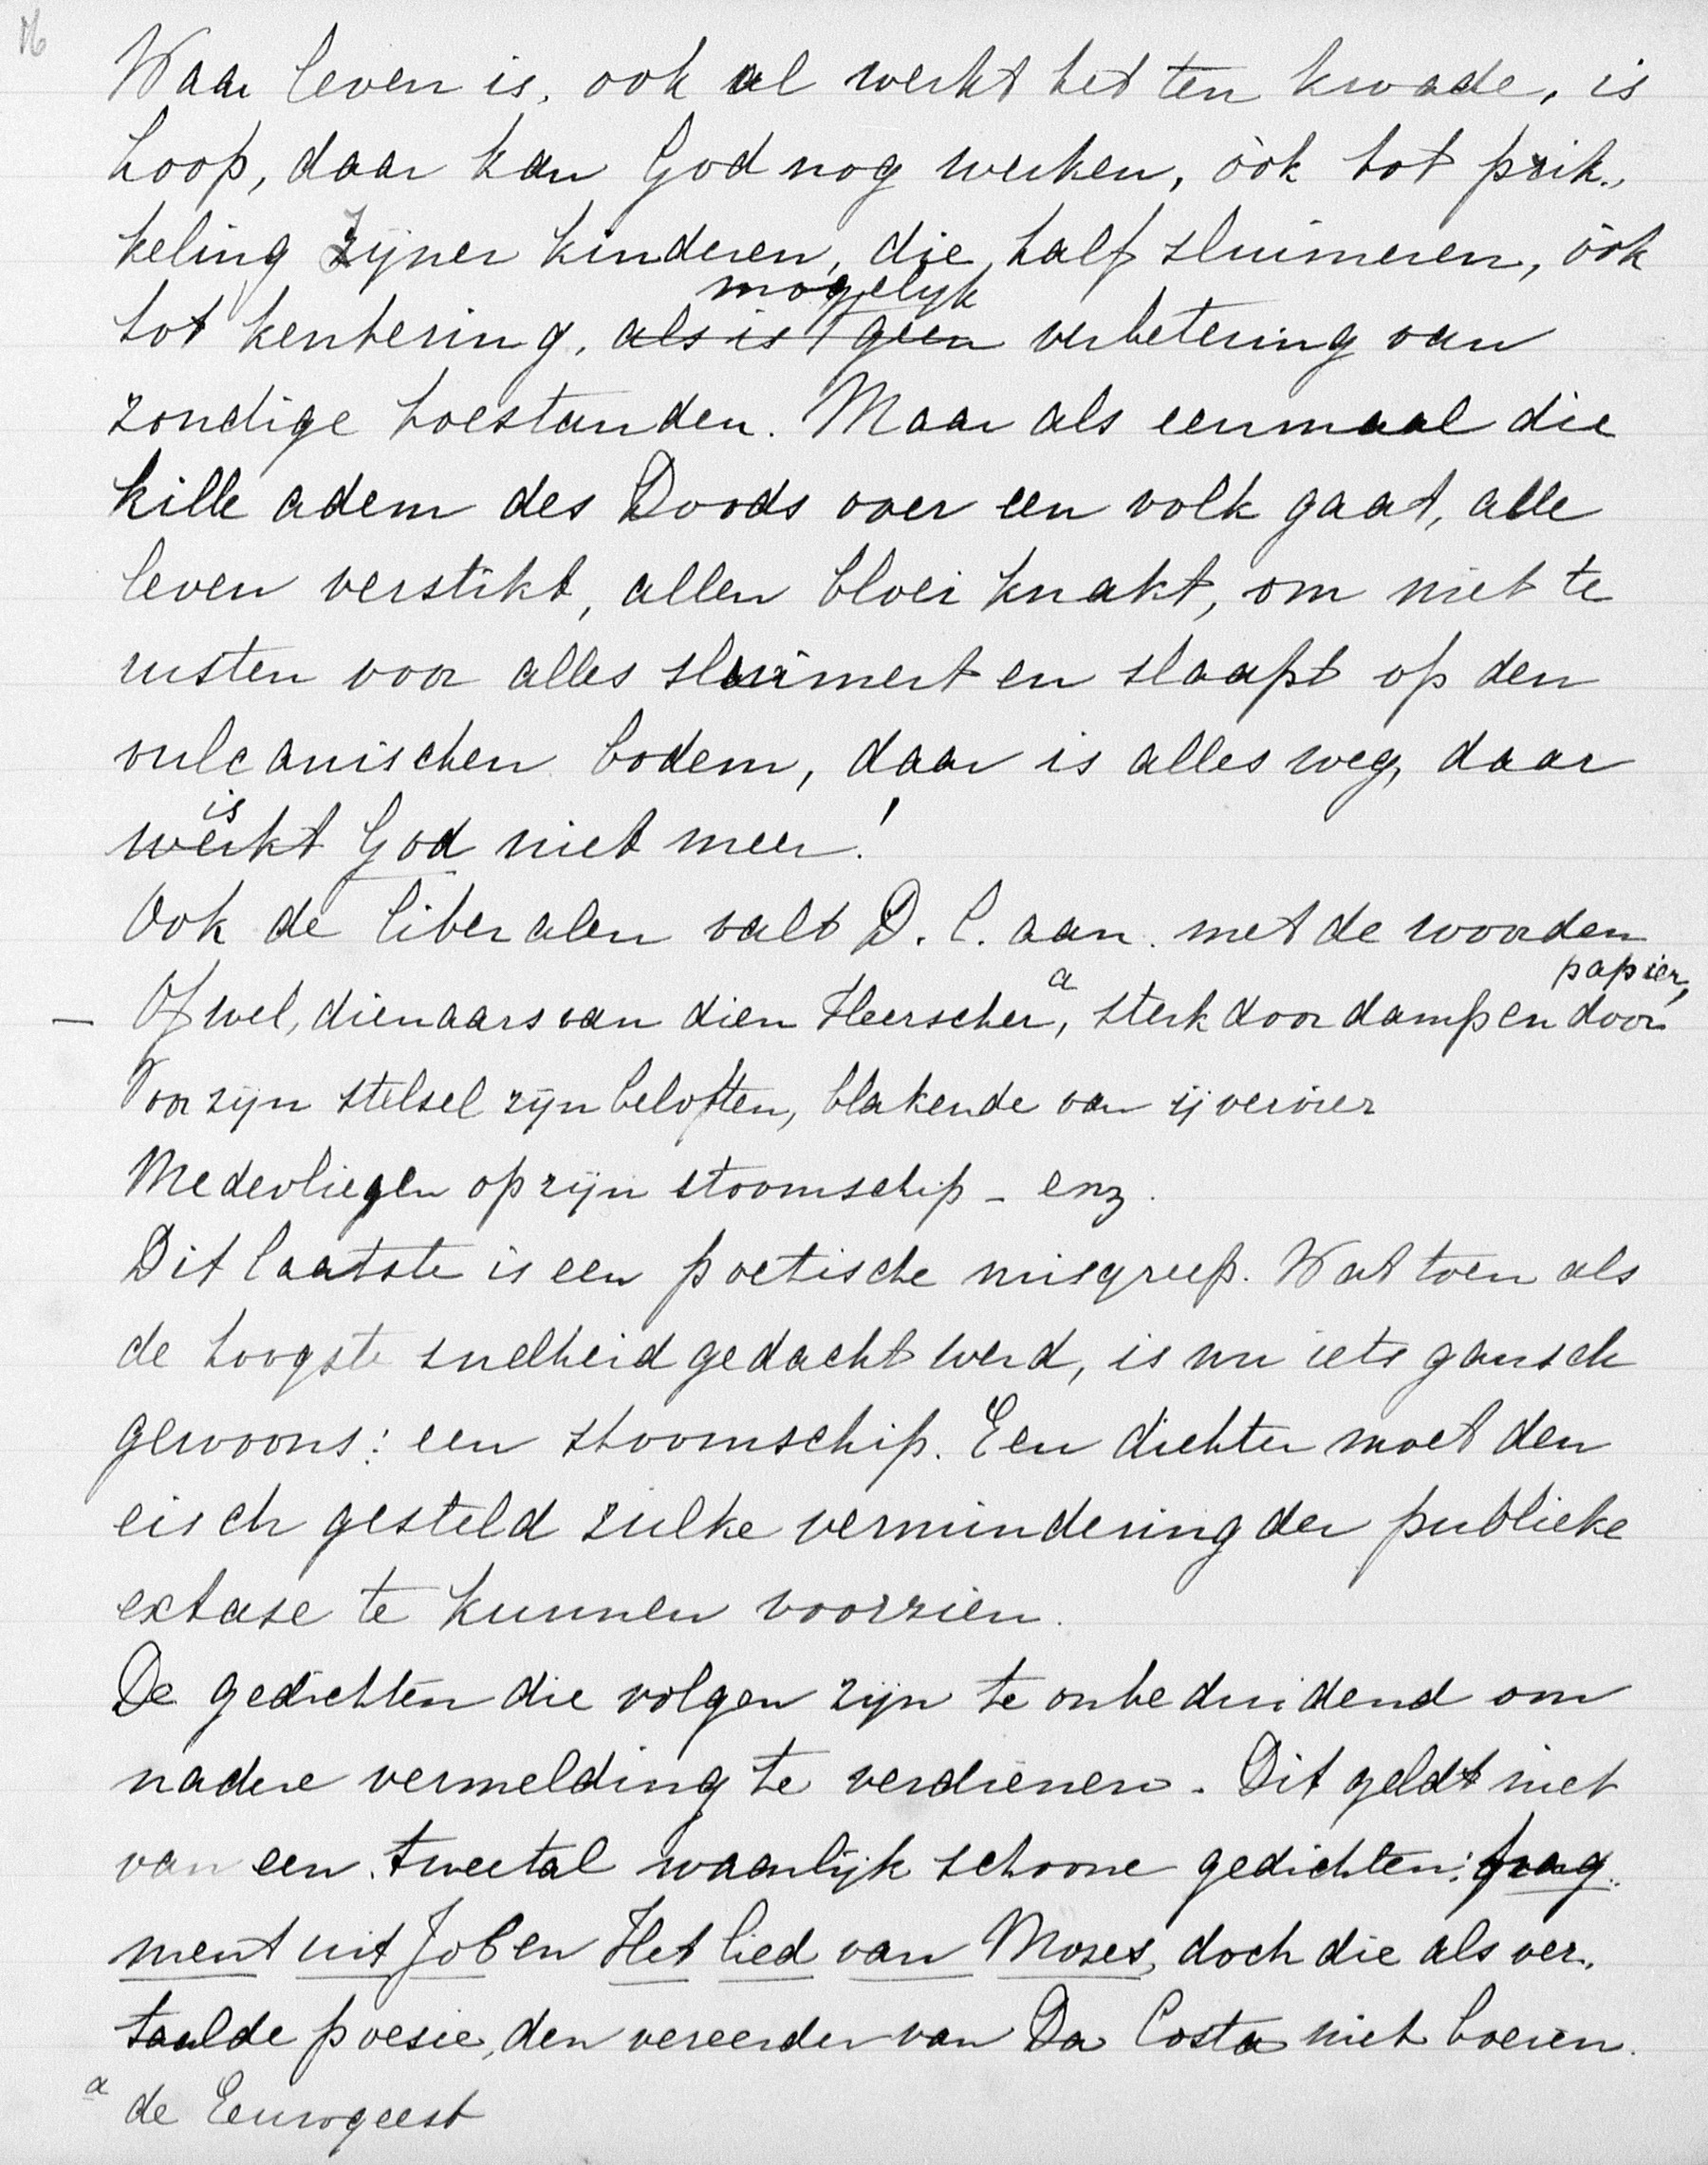 16
Waar leven is, ook al werkt het ten kwade, is
hoop, daar kan God nog werken, òòk tot prik-
keling Zijner kinderen, die half sluimeren, òòk
mogelijk
tot kentering, als is 't geen verbetering van
zondige toestanden. Maar als eenmaal die
kille adem des Doods over een volk gaat, alle
leven verstikt, allen bloei knakt, om niet te
rusten voor alles sluimert en slaapt op den
vulcanischen bodem, daar is alles weg, daar
is
werkt God niet meer!
Ook de liberalen valt D. C. aan met de woorden
papier,
— Of wel, dienaars van dien Heerscher a, sterk door damp en door
Voor zijn stelsel zijn beloften, blakende van ijvervier
Medevliegen op zijn stoomschip - enz.
Dit laatste is een poetische misgreep. Wat toen als
de hoogste snelheid gedacht werd, is nu iets gansch
gewoons: een stoomschip. Een dichter moet den
eisch gesteld zulke vermindering der publieke
extase te kunnen voorzien.
De gedichten die volgen zijn te onbeduidend om
nadere vermelding te verdienen. Dit geldt niet
van een tweetal waarlijk schoone gedichten: frag-
ment uit Job en Het lied van Mozes, doch die als ver-
taalde poesie, den vereerder van Da Costa niet boeien.
a de Eeuwgeest